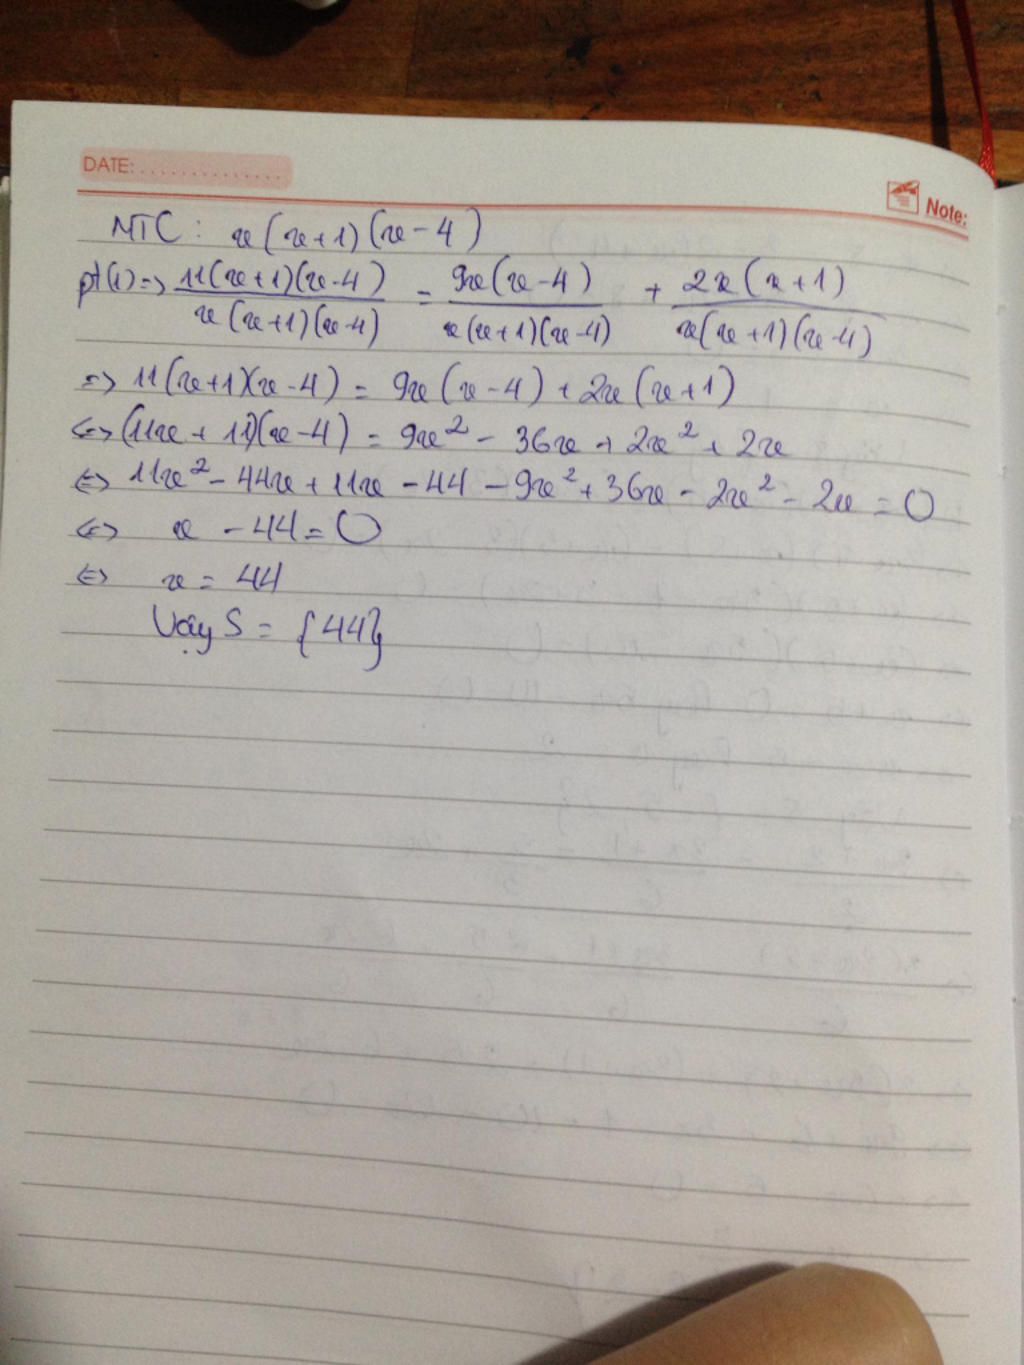 DATE:..............
Note:
MTC: x(x+1)(x-4)
pt(1)=> 11(x+1)(x-4)/x(x+1)(x-4) = 9x(x-4)/x(x+1)(x-4) + 2x(x+1)/x(x+1)(x-4)
=> 11(x+1)(x-4) = 9x(x-4) + 2x(x+1)
<=> (11x+11)(x-4) = 9x² - 36x + 2x² + 2x
<=> 11x² - 44x + 11x - 44 - 9x² + 36x - 2x² - 2x = 0
<=> x - 44 = 0
<=> x = 44
Vậy S = {44}